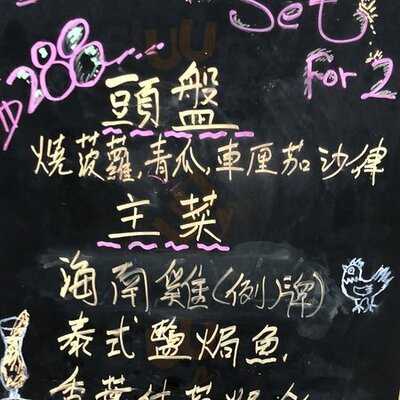 Set
for 2
$288
頭盤
燒菠蘿,青瓜,車厘茄沙律
主菜
海南雞(例牌)
泰式鹽焗魚,